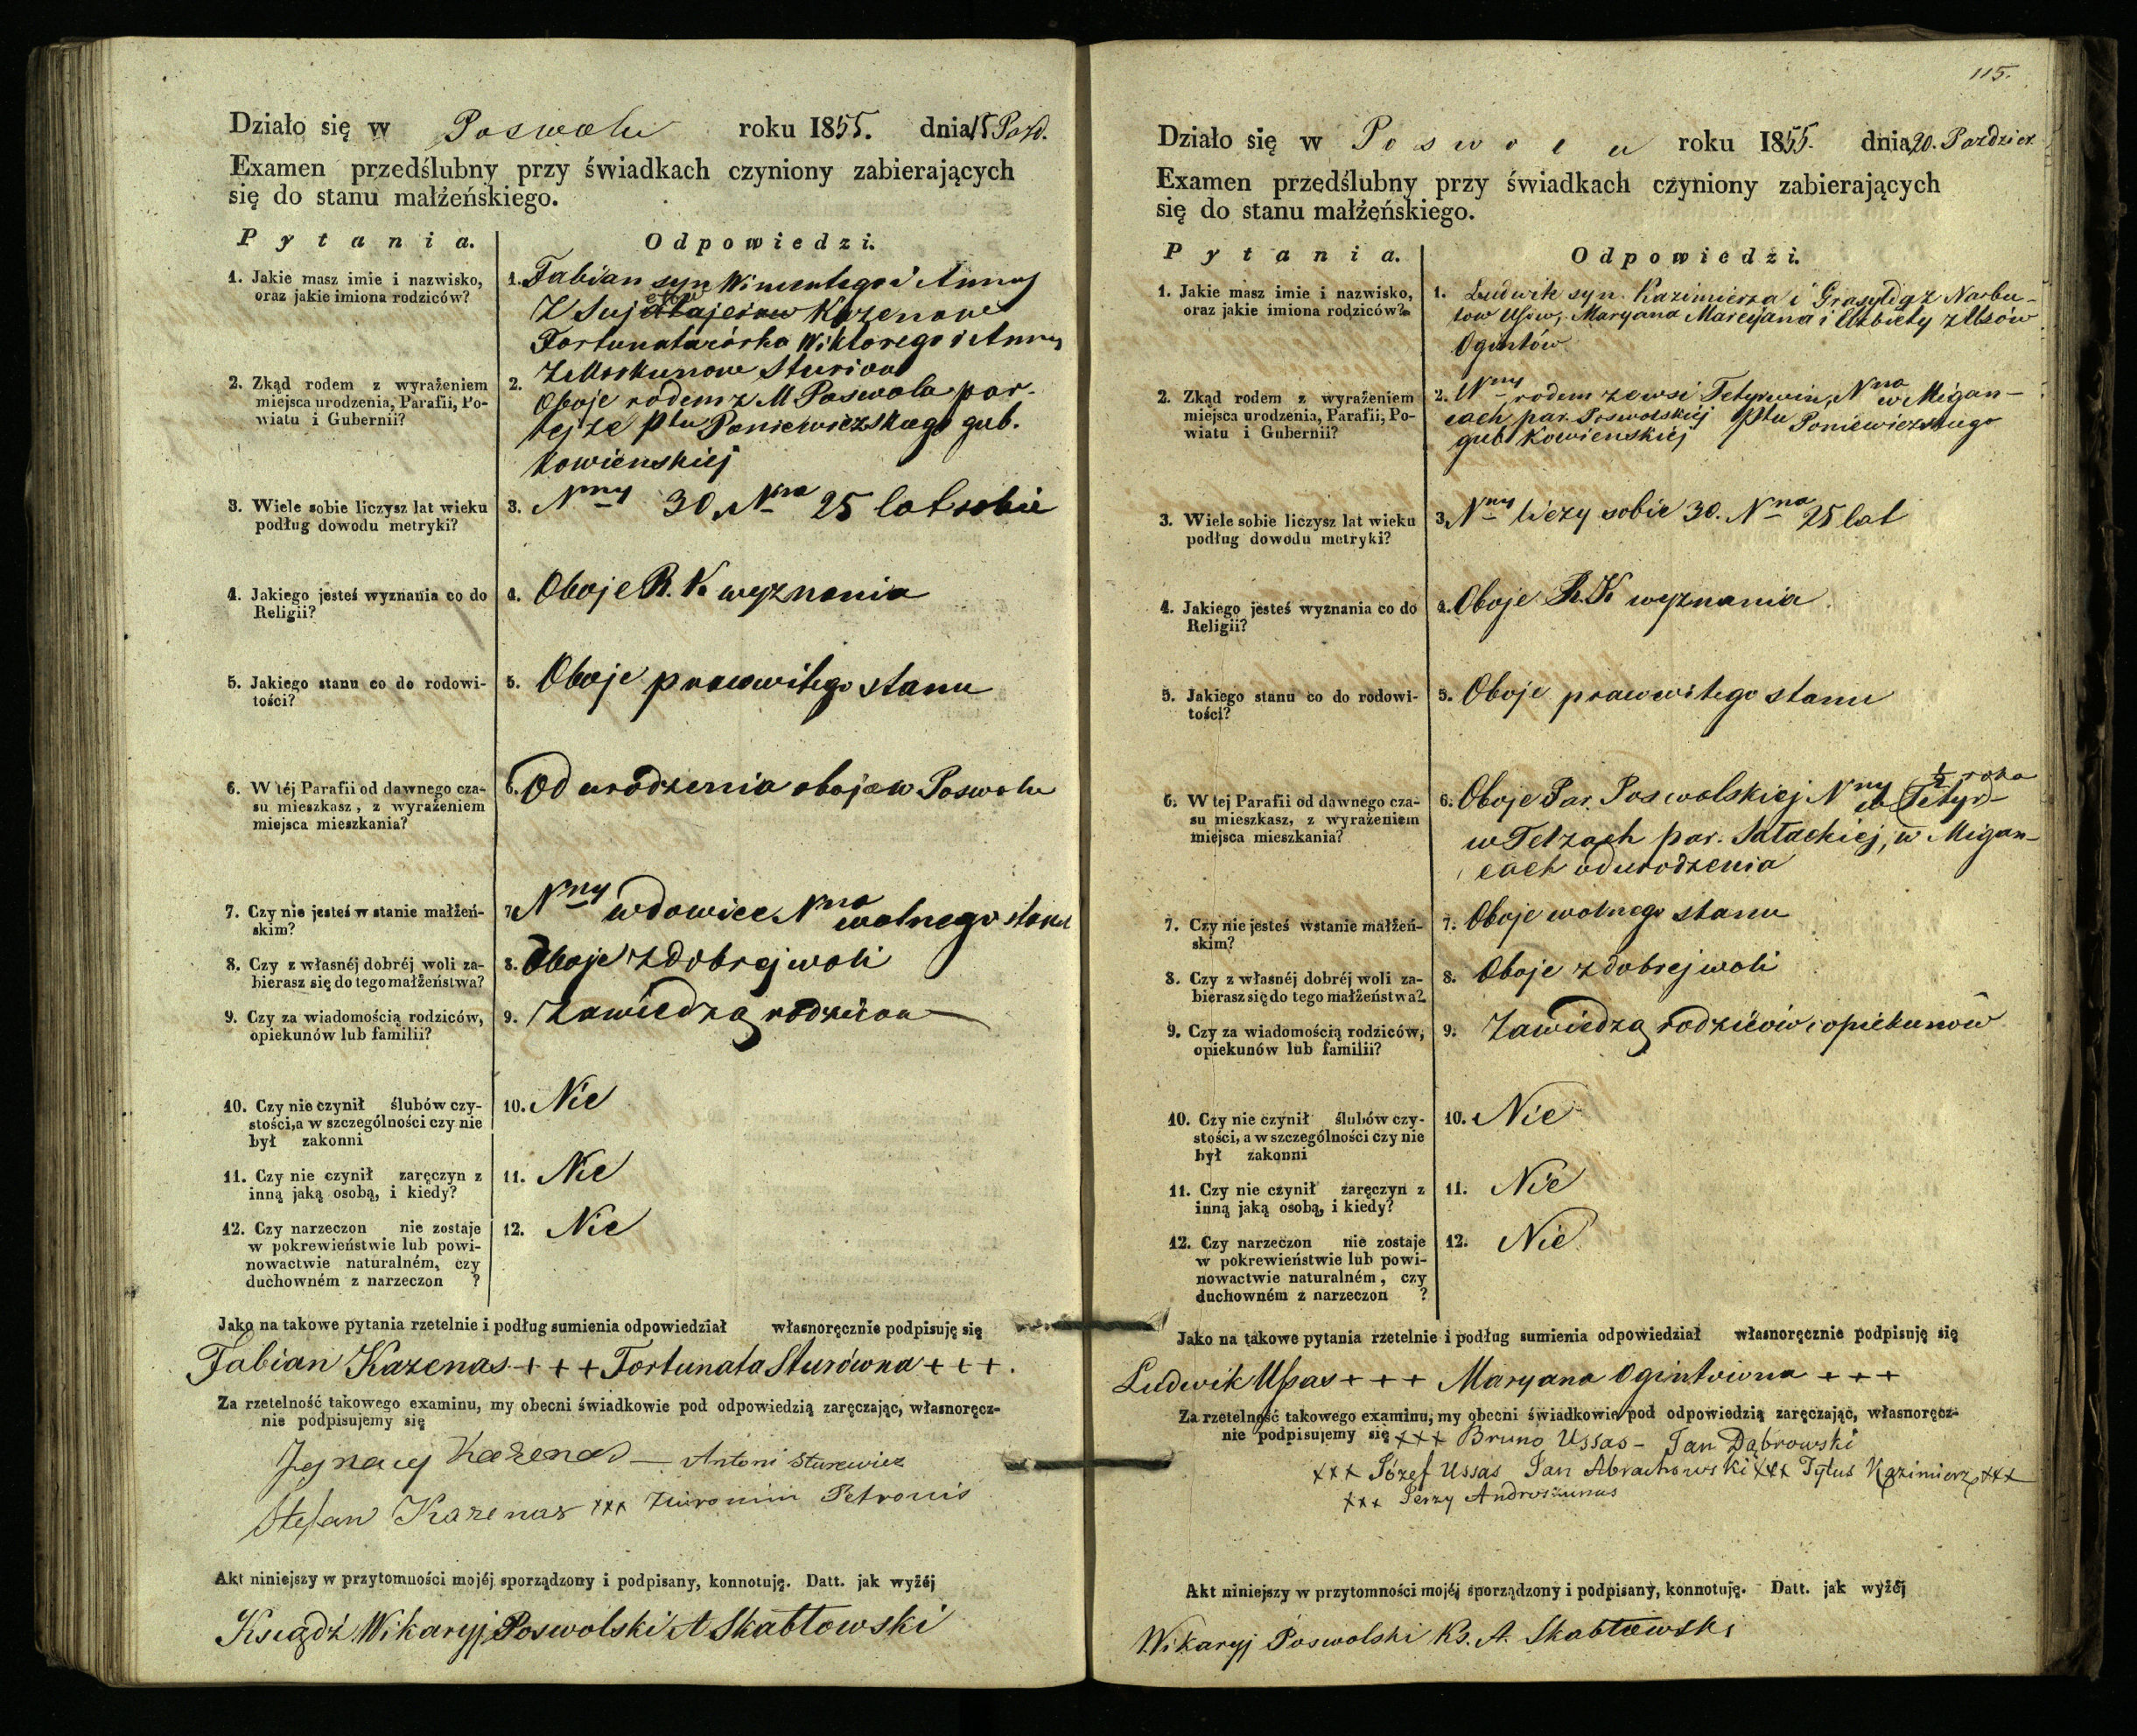 Działo się w Poswolu roku 1855. dnia 15 Paźd.
Examen przedślubny przy świadkach czyniony zabierających
się do stanu małżeńskiego.
Pytania. Odpowiedzi.
1. Jakie masz imie i nazwisko,
oraz jakie imiona rodziców?
1. Fabian syn Wincentego i Anny
Kazenow
Fortunata córka Wiktorego i Anny
Sturiow
2. Zkąd rodem z wyrażeniem
miejsca urodzenia, Parafii, Po-
wiatu i Gubernii?
2. Oboje rodem z M Poswola par.
tejże Ptu Poniewiezskiego gub.
Kowienskiej
3. Wiele sobie liczysz lat wieku
podług dowodu metryki?
3. Nny 30, Nna 25 lat sobie
4. Jakiego jesteś wyznania co do
Religii?
4. Oboje R. K wyznania
5. Jakiego stanu co do rodowi-
tości?
5. Oboje prawowitego stanu
6. W téj Parafii od dawnego cza-
su mieszkasz, z wyrażeniem
miejsca mieszkania?
6. Od urodzenia oboje w Poswolu
7. Czy nie jesteś w stanie małżeń-
skim?
7. Nny wdowiec Nna wolnego stanu
8. Czy z własnéj dobréj woli za-
bierasz się do tego małżeństwa?
8. Oboje z dobrej woli
9. Czy za wiadomością rodziców,
opiekunów lub familii?
9. Zawiedzą rodziców
10. Czy nie czynił ślubów czy-
stości, a w szczególności czy nie
był zakonni
10. Nie
11. Czy nie czynił zaręczyn z
inną jaką osobą, i kiedy?
11. Nie
12. Czy narzeczon nie zostaje
w pokrewieństwie lub powi-
nowactwie naturalném, czy
duchowném z narzeczon ?
12. Nie
Jako na takowe pytania rzetelnie i podług sumienia odpowiedział własnoręcznie podpisuję się
Fabian Kazenas + + + Fortunata Sturówna + + + .
Za rzetelność takowego examinu, my obecni świadkowie pod odpowiedzią zaręczając, własnoręcz-
nie podpisujemy się
Jgnacy Kazenas — Antoni Sturewicz
Stefan Kazenas xxx Petronis
Akt niniejszy w przytomności mojéj sporządzony i podpisany, konnotuję. Datt. jak wyżéj
Ksiądz Wikaryj Poswolski A Skabłowski
115.
Działo się w Poswolu roku 1855. dnia 20. Paździer
Examen przedślubny przy świadkach czyniony zabierających
się do stanu małżeńskiego.
Pytania. Odpowiedzi.
1. Jakie masz imie i nazwisko,
oraz jakie imiona rodziców?
1. Ludwik syn Kazimierza i z Narbu-
tow Usów, Maryana Marcyana i Elżbiety z Usów
Ogintów
2. Zkąd rodem z wyrażeniem
miejsca urodzenia, Parafii, Po-
wiatu i Gubernii?
2. Nny rodem ze wsi Tetyrwin, Nna w Migan-
cach par. Poswolskiej Ptu Poniewiezskiego
gub Kowienskiej
3. Wiele sobie liczysz lat wieku
podług dowodu metryki?
3. Nny liczy sobie 30. Nna 25 lat
4. Jakiego jesteś wyznania co do
Religii?
4. Oboje R. K wyznania
5. Jakiego stanu co do rodowi-
tości?
5. Oboje prawowitego stanu
6. W tej Parafii od dawnego cza-
su mieszkasz, z wyrażeniem
miejsca mieszkania?
6. Oboje Par. Poswolskiej Nny ½ roka w Tetyr-
w Tetzach par. Sałackiej, w Migan-
cach od urodzenia
7. Czy nie jesteś wstanie małżeń-
skim?
7. Oboje wolnego stanu
8. Czy z własnéj dobréj woli za-
bierasz się do tego małżeństwa?
8. Oboje z dobrej woli
9. Czy za wiadomością rodziców,
opiekunów lub familii?
9. Zawiedzą rodziców i opiekunów
10. Czy nie czynił ślubów czy-
stości, a w szczególności czy nie
był zakonni
10. Nie
11. Czy nie czynił zaręczyn z
inną jaką osobą, i kiedy?
11. Nie
12. Czy narzeczon nie zostaje
w pokrewieństwie lub powi-
nowactwie naturalném, czy
duchowném z narzeczon ?
12. Nie
Jako na takowe pytania rzetelnie i podług sumienia odpowiedział własnoręcznie podpisuję się
Ludwik Ussas + + + Maryana Ogintówna + + +
Za rzetelność takowego examinu, my obecni świadkowie pod odpowiedzią zaręczając, własnoręcz-
nie podpisujemy się xxx Bruno Ussas – Jan Dąbrowski
xxx Józef Ussas Jan Abrachowski xxx Tytus Kazimierz xxx
xxx Jerzy Androszunas
Akt niniejszy w przytomności mojéj sporządzony i podpisany, konnotuję. Datt. jak wyżéj
Wikaryj Poswolski Ks. A. Skabłowski